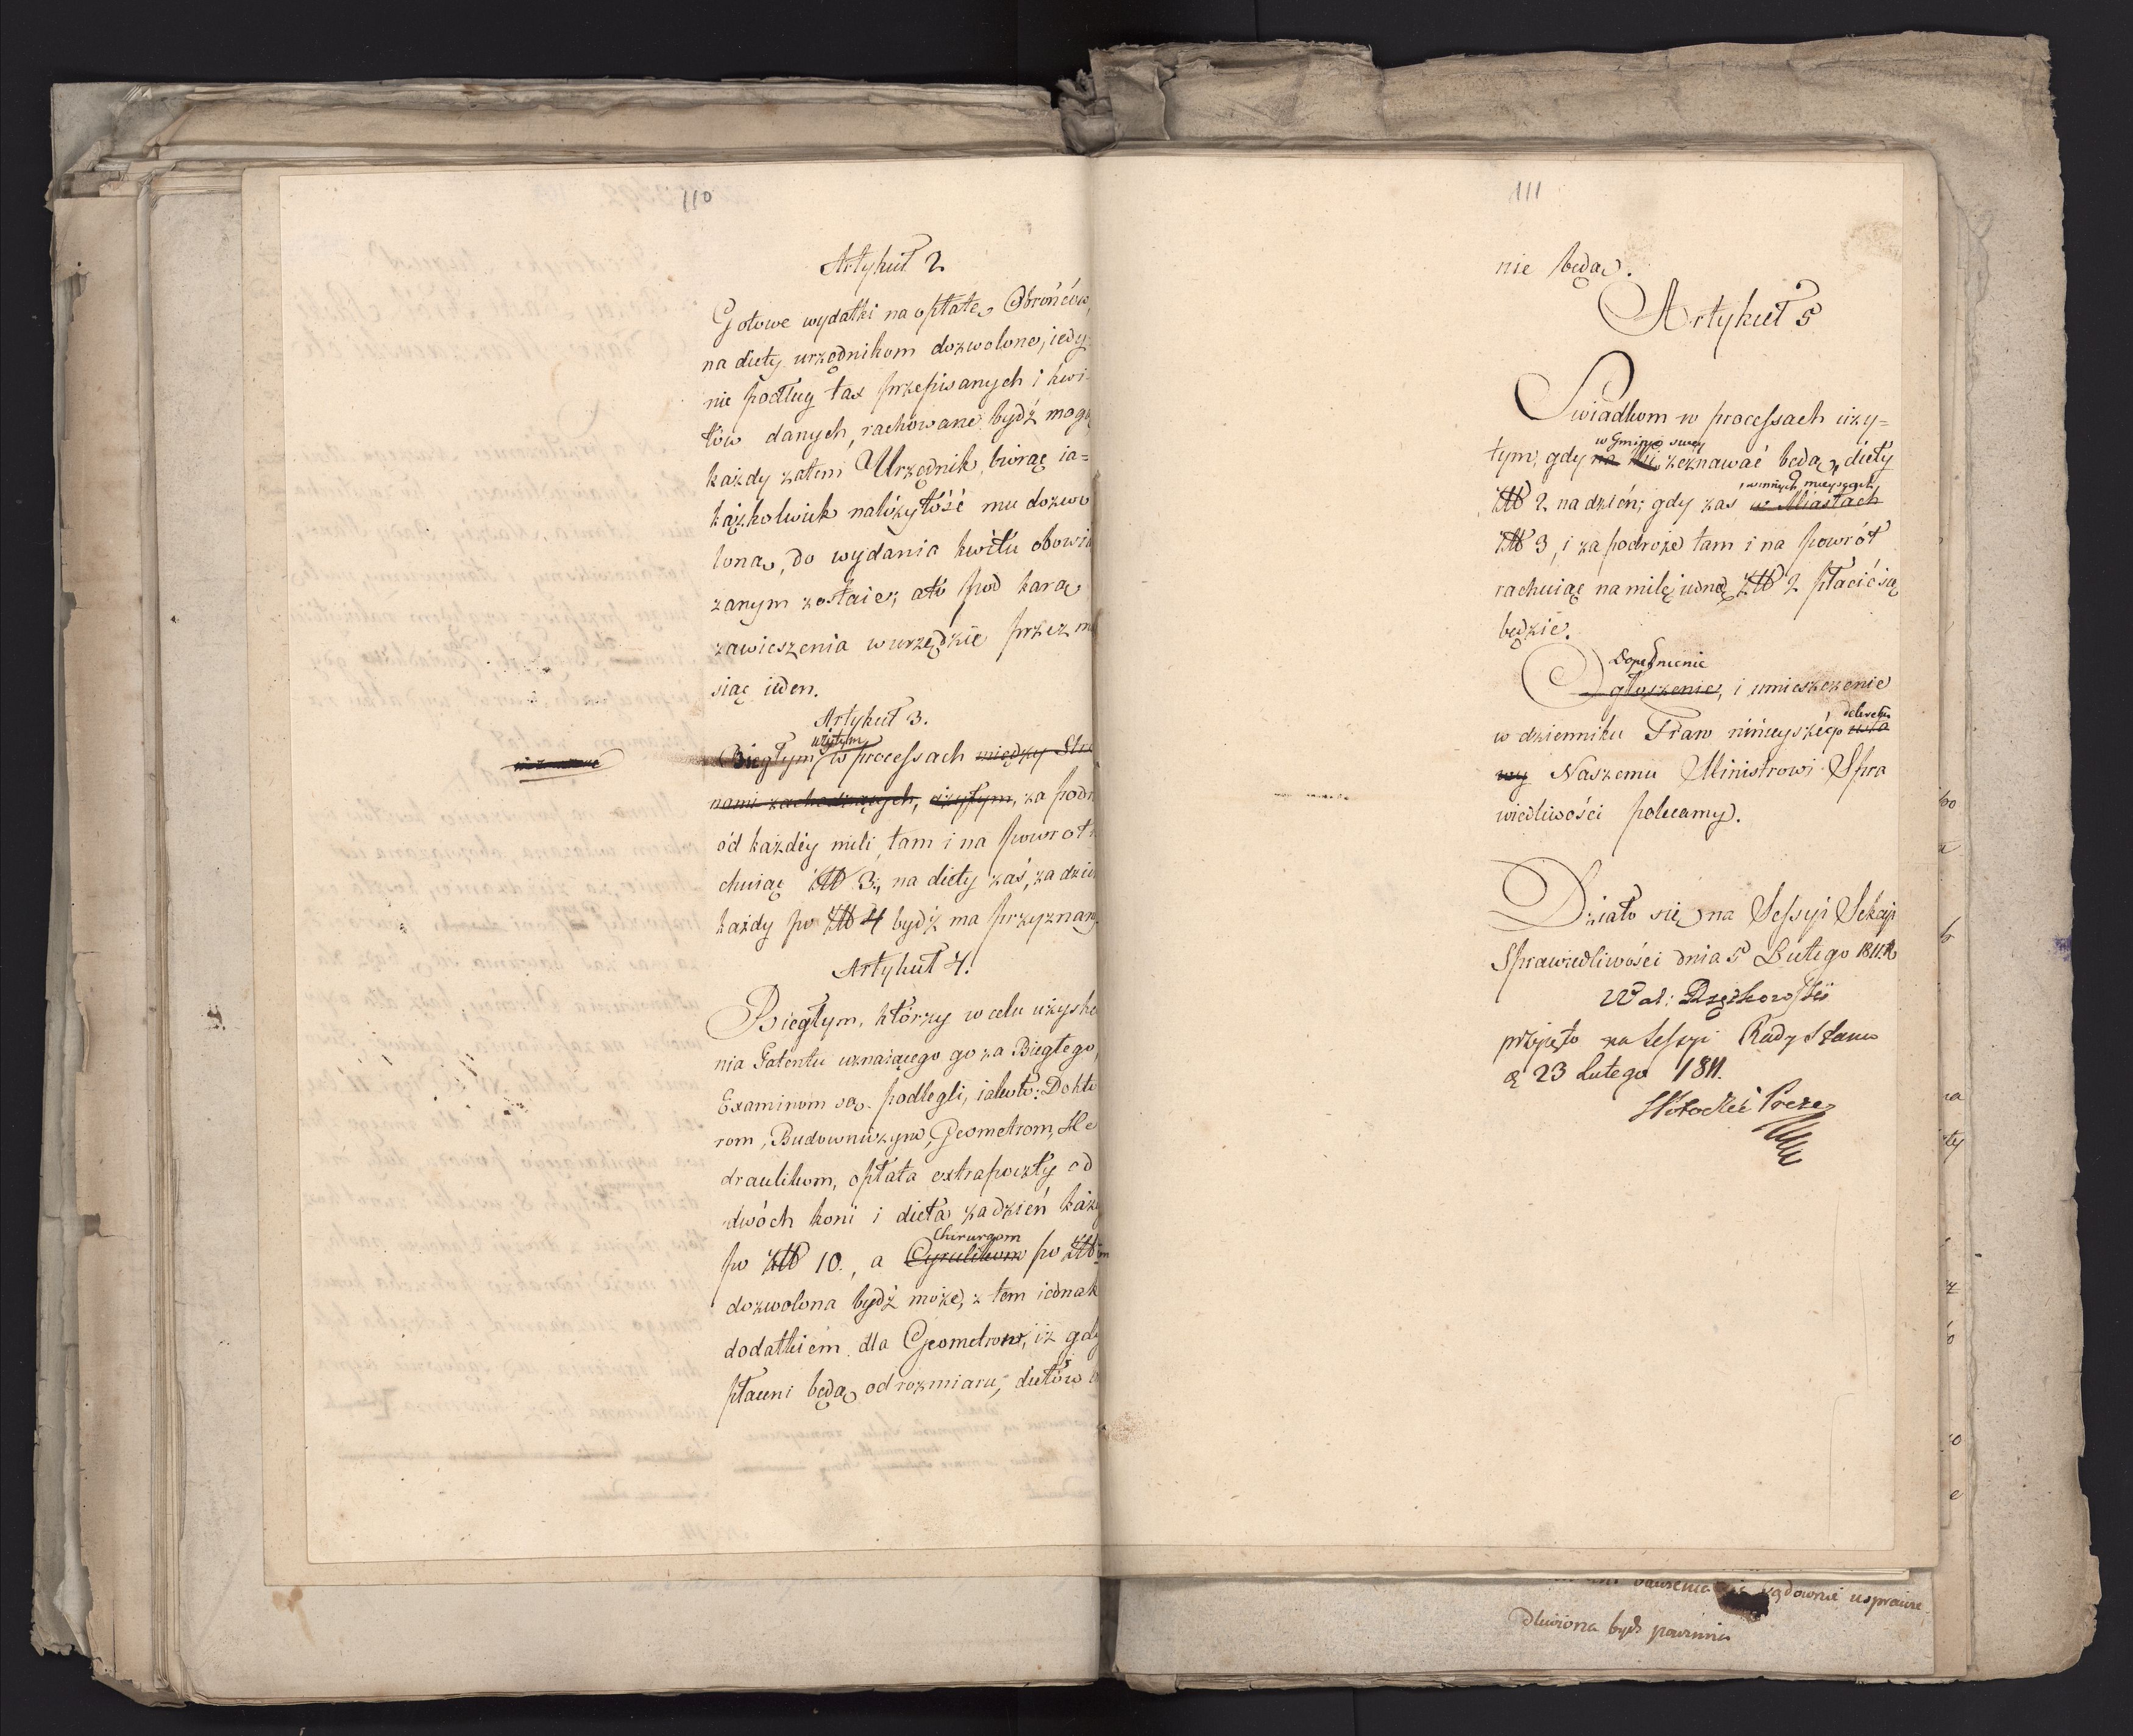 110
Artykuł 2
Gotowe wydatki na opłatę Obrońców,
na diety urzędnikom dozwolone, iedy-
nie podług tax przepisanych i kwi-
tów danych, rachowane bydź mogą
każdy zatem Urzędnik, biorąc ia=
kążkolwiek należytość mu dozwo
loną, do wydania kwitu obowią
zanym zostaie, a to pod karą
zawieszenia w urzędzie przez mie
siąc ieden.
Artykuł 3.
użytym
Biegłym w processach między Stro
nami zachodzących, użytym, za podró
od każdéy mili, tam i na powrót
chuiąc Złł 3., na diety zaś, za dzień
każdy po Złł 4 bydź ma przyznany
Artykuł 4.
Biegłym, którzy w celu uzyska
nia Patentu uznaiącego go za Biegłego,
Examinom są podlegli, iako to: Dokto
rom, Budowniczym, Geometrom, He
draulikom, opłata extrapoczty od
dwóch koni i dieta za dzień każdy
Chirurgom
po Złł 10., a Cyrulikom po Złł
dozwolona bydź może, z tem iednak
dodatkiem dla Geometrów, iż gdy
płaceni będą od rozmiaru, dietów
111
nie będą.
Artykuł 5
Swiadkom w processach uży=
w Gminie swey
tym, gdy na zeznawać będą, diety
w innych mieyscach
Złł 2 na dzień; gdy zas w Miastach
Złł 3, i za podróże tam i na powrót
rachuiąc na milę iedną Złł 2 płacić się
będzie.
Dopełnienie
Ogłoszenie, i umieszczenie
dekretu
w dzienniku Praw ninieyszégo usta
wy Naszemu Ministrowi Spra
wiedliwości polecamy.
Działo się na Sessyi Sekcyi
Sprawiedliwości dnia 5 Lutego 1811. R
przyjęto na Sessyi Rady Stanu
d 23 Lutego 1811.
Prezes
sądownie usprawie
dliwiona bydź powinna